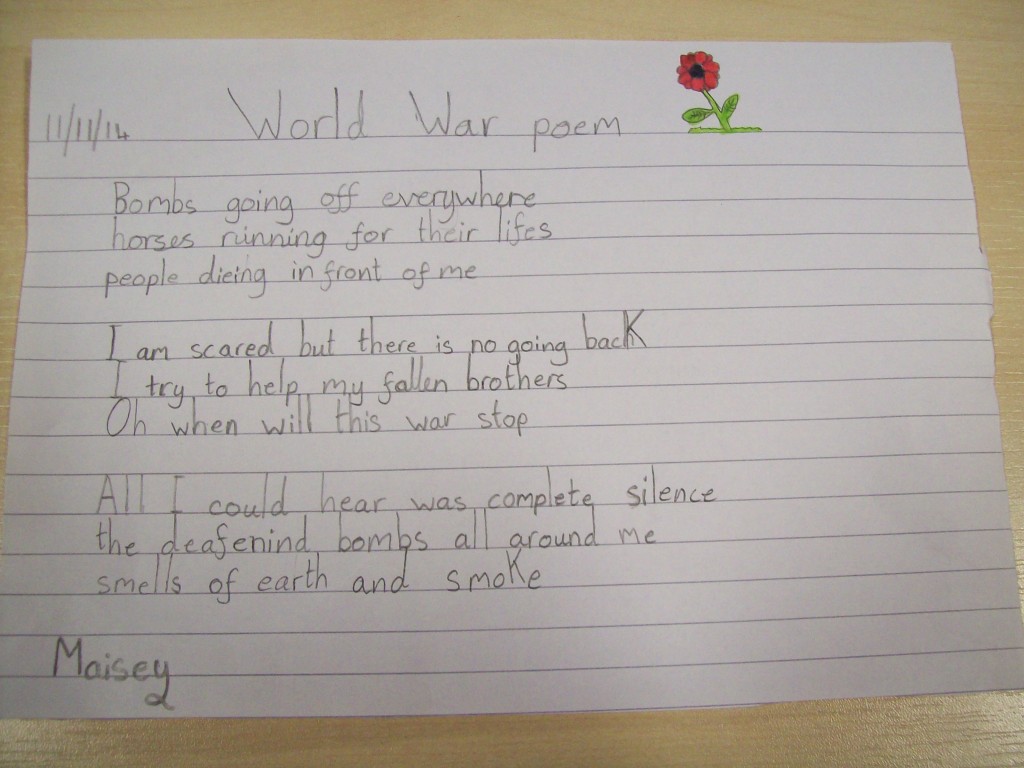 11/11/14 World War poem
Bombs going off everywhere
horses running for their lifes
people dieing in front of me
I am scared but there is no going back
I try to help my fallen brothers
Oh when will this war stop
All I could hear was complete silence
the deafenind bombs all around me
smells of earth and smoke
Maisey